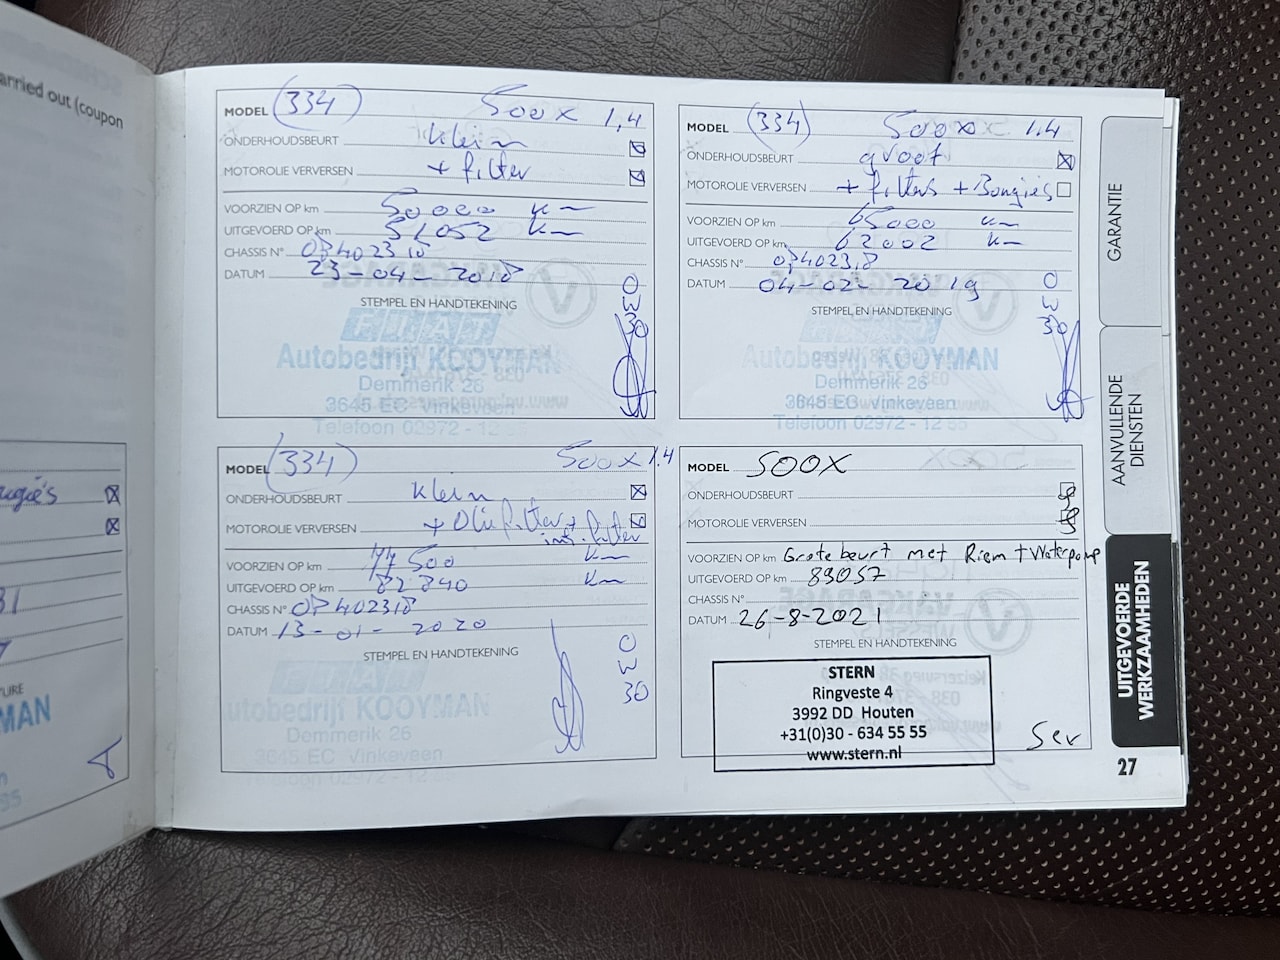 arried out (coupon
MODEL (334) 500X 1,4
ONDERHOUDSBEURT klein
MOTOROLIE VERVERSEN + filter
VOORZIEN OP km 50000 km
UITGEVOERD OP km 51052 km
CHASSIS N° 0P402318
DATUM 23-04-2018
STEMPEL EN HANDTEKENING
O
W
30
FIAT
Autobedrijf KOOYMAN
Demmerik 26
3645 EC Vinkeveen
Telefoon 02972 - 12
MODEL (334) 500X 1.4
ONDERHOUDSBEURT groot
MOTOROLIE VERVERSEN + filters + Bougies
VOORZIEN OP km 65000 km
UITGEVOERD OP km 62002 km
CHASSIS N° 0P402318
DATUM 04-02-2019
STEMPEL EN HANDTEKENING
O
W
30
Autobedrijf KOOYMAN
Demmerik 26
3645 EC Vinkeveen
Telefoon 02972 - 12
MODEL (334) 500X 1.4
ONDERHOUDSBEURT klein
MOTOROLIE VERVERSEN + Oliefilter +
int. filter
VOORZIEN OP km 77500 km
UITGEVOERD OP km 82840 km
CHASSIS N° 0P402318
DATUM 13-01-2020
STEMPEL EN HANDTEKENING
O
W
30
FIAT
Autobedrijf KOOYMAN
Demmerik 26
3645 EC Vinkeveen
Telefoon 02972 - 12
MODEL 500X
ONDERHOUDSBEURT
MOTOROLIE VERVERSEN
VOORZIEN OP km Grote beurt met Riem + Waterpomp
UITGEVOERD OP km 89057
CHASSIS N°
DATUM 26-8-2021
STEMPEL EN HANDTEKENING
STERN
Ringveste 4
3992 DD Houten
+31(0)30 - 634 55 55
www.stern.nl
GARANTIE
AANVULLENDE
DIENSTEN
UITGEVOERDE
WERKZAAMHEDEN
27
MAN